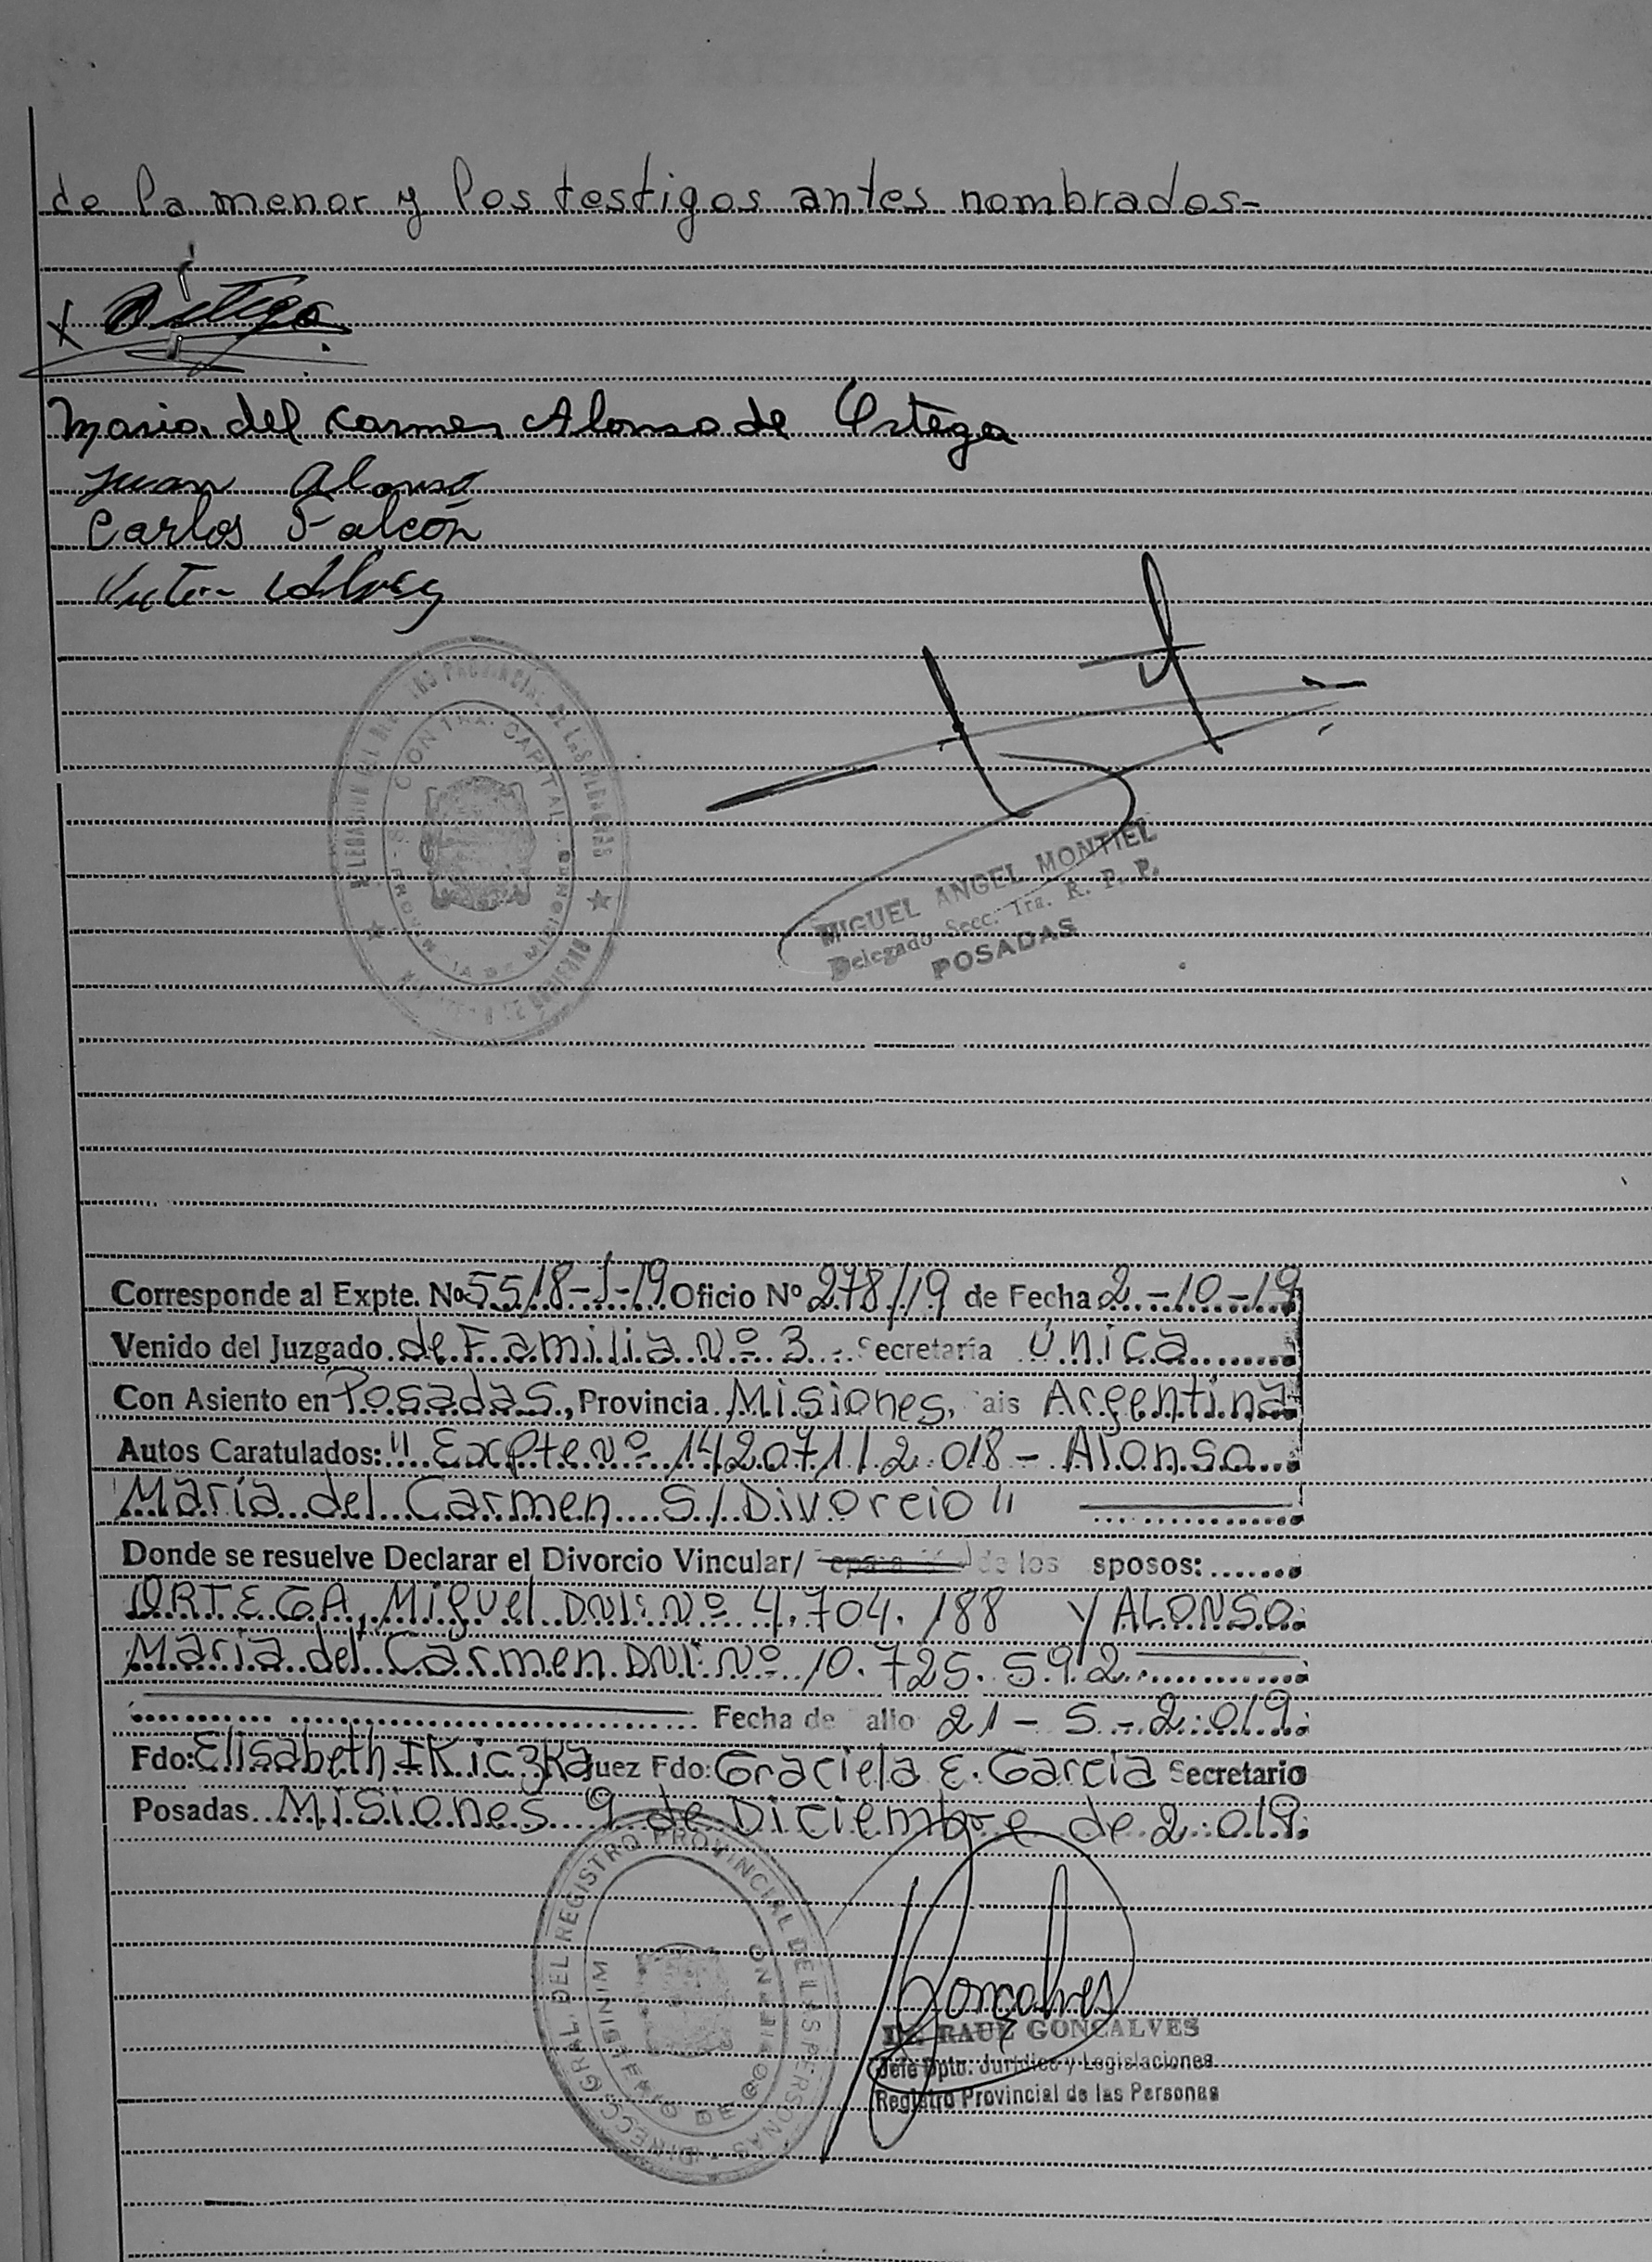 de la menor y los testigos antes nombrados-
x Ortega
Maria del Carmen Alonso de Ortega
Juan Alonso
Carlos Falcón
Victor
PROVINCIAL DE LAS PERSONAS
CAPITAL
MIGUEL ANGEL MONTIEL
Delegado Secc. 1ra. R. P. P.
POSADAS
Corresponde al Expte. No 5518-J-19 Oficio Nº 278/19 de Fecha 2-10-19
Venido del Juzgado de Familia Nº 3 - Secretaría Única
Con Asiento en Posadas, Provincia Misiones, ais Argentina
Autos Caratulados: "Expte Nº 142071/2018 - Alonso
María del Carmen S/Divorcio"
Donde se resuelve Declarar el Divorcio Vincular/ de los sposos:
ORTEGA, Miguel DNI: Nº 4.704.188 y ALONSO
María del Carmen DNI: Nº 10.725.592
Fecha de allo 21-5-2019
Fdo: Elisabeth Kiczka uez Fdo: Graciela E. García Secretario
Posadas Misiones 9 de Diciembre de 2019
DIRECC. GRAL. DEL REGISTRO PROVINCIAL DE LAS PERSONAS
Goncalves
Dr. RAUL GONCALVES
Jefe Dpto. Jurídico y Legislaciones
Registro Provincial de las Personas